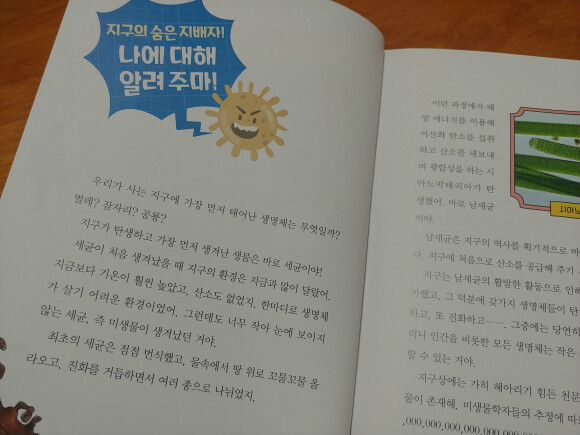 지구의 숨은 지배자!
나에 대해
알려 주마!
우리가 사는 지구에 가장 먼저 태어난 생명체는 무엇일까?
벌레? 잠자리? 공룡?
지구가 탄생하고 가장 먼저 생겨난 생물은 바로 세균이야!
세균이 처음 생겨났을 때 지구의 환경은 지금과 많이 달랐어.
지금보다 기온이 훨씬 높았고, 산소도 없었지. 한마디로 생명체
가 살기 어려운 환경이었어. 그런데도 너무 작아 눈에 보이지
않는 세균, 즉 미생물이 생겨났던 거야.
최초의 세균은 점점 번식했고, 물속에서 땅 위로 꼬물꼬물 올
라오고, 진화를 거듭하면서 여러 종으로 나뉘었지.
이런 과정에서 태
양 에너지를 이용해
이산화 탄소를 섭취
하고 산소를 내보내
며 광합성을 하는 시
아노박테리아가 탄
생했어. 바로 남세균
이야.
남세균은 지구의 역사를 획기적으로 바
다. 지구에 처음으로 산소를 공급해 주기
지구는 남세균의 활발한 활동으로 인해
가했고, 그 덕분에 갖가지 생명체들이 탄
하고, 또 진화하고……. 그중에는 당연히
리니 인간을 비롯한 모든 생명체는 작은
할 수 있는 거야.
지구상에는 가히 헤아리기 힘든 천문
물이 존재해. 미생물학자들의 추정에 따르
,000,000,000,000,000,000,000,000